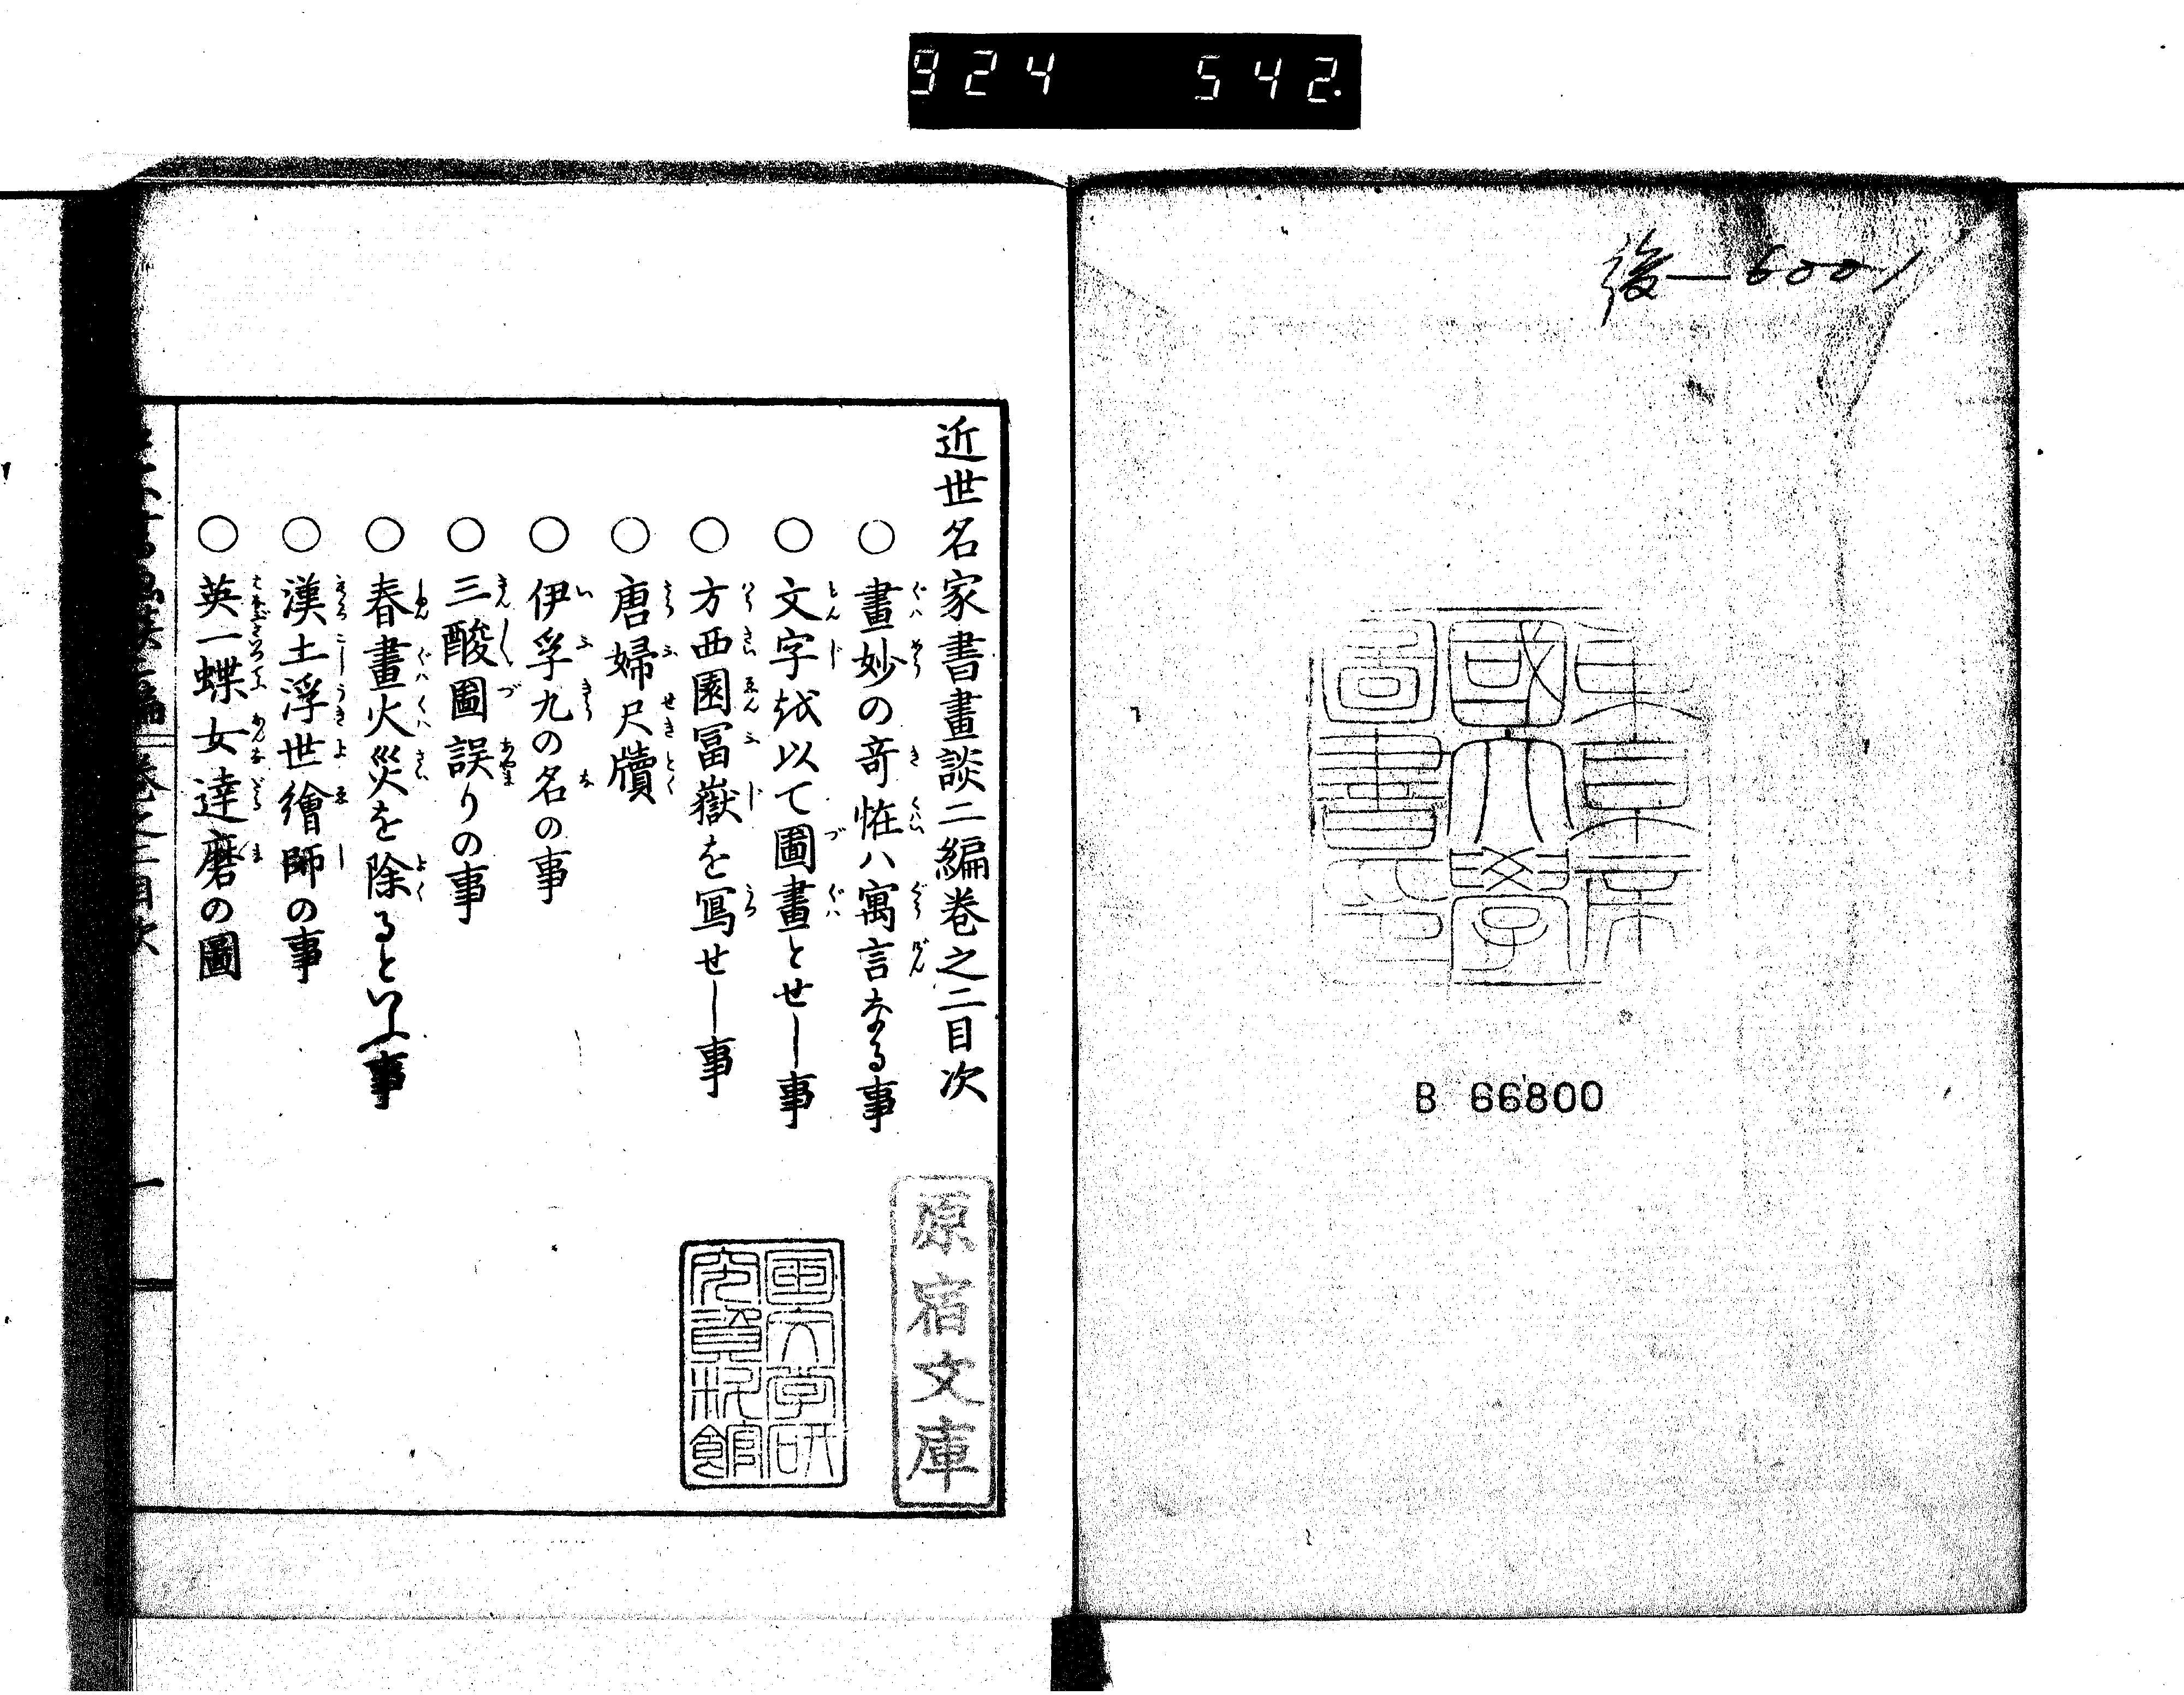 924 542.
後—6001
東京帝國大學圖書印
B 66800
近世名家書畫談二編巻之二目次
○畫妙の竒恠ハ寓言なる事
○文字を以て圖畫とせし事
○方西園冨嶽を冩せし事
○唐婦尺牘
○伊孚九の名の事
○三酸圖誤りの事
○春畫火災を除るといふ事
○漢土浮世繪師の事
○英一蝶女達磨の圖
原宿文庫
国文学研究資料館
一